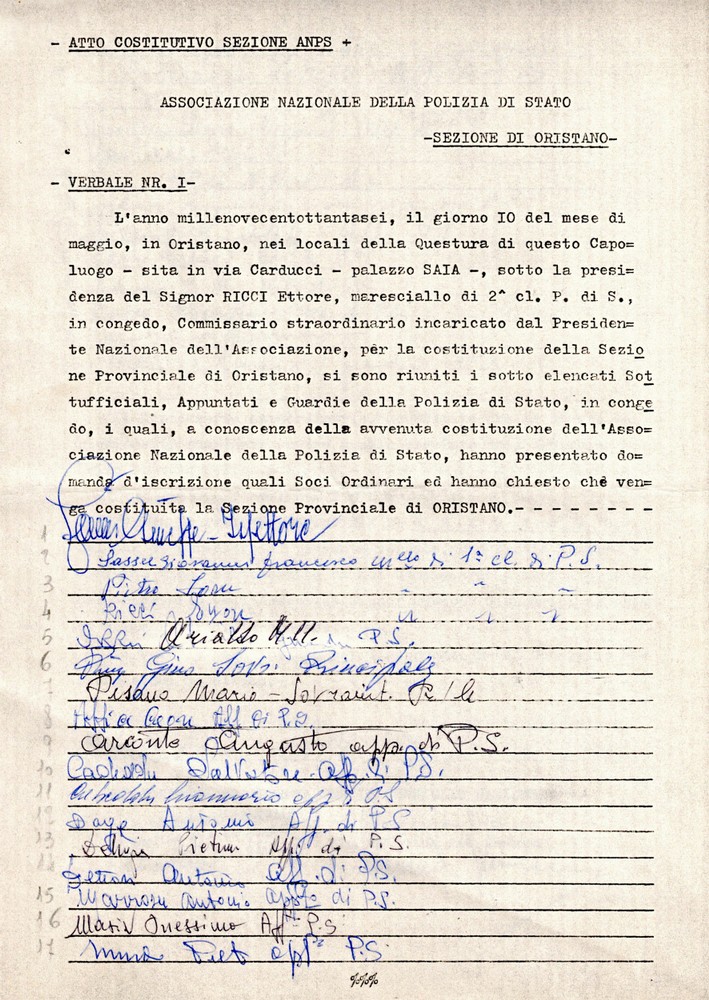 - ATTO COSTITUTIVO SEZIONE ANPS +
ASSOCIAZIONE NAZIONALE DELLA POLIZIA DI STATO
-SEZIONE DI ORISTANO-
- VERBALE NR. I-
L'anno millenovecentottantasei, il giorno IO del mese di
maggio, in Oristano, nei locali della Questura di questo Capo=
luogo - sita in via Carducci - palazzo SAIA -, sotto la presi=
denza del Signor RICCI Ettore, maresciallo di 2^ cl. P. di S.,
in congedo, Commissario straordinario incaricato dal Presiden=
te Nazionale dell'Associazione, pèr la costituzione della Sezio
ne Provinciale di Oristano, si sono riuniti i sotto elencati Sot
tufficiali, Appuntati e Guardie della Polizia di Stato, in conge
do, i quali, a conoscenza della avvenuta costituzione dell'Asso=
ciazione Nazionale della Polizia di Stato, hanno presentato do=
manda d'iscrizione quali Soci Ordinari ed hanno chiesto chè ven=
ga costituita la Sezione Provinciale di ORISTANO.- - - - - - - -
1 Giuseppe - Ispettore
2 Giovanni Francesco m.llo di 1ª cl. di P.S.
3 Pietro
4
5 P.S.
6 Gino
7 Pisano Mario - Sovraint.
8 App. di P.S.
9 Arconte Augusto app. di P.S.
10 Salvatore App. di P.S.
11 app. di P.S.
12 Antonio App. di P.S.
13 App. di P.S.
14 Antonio App. di P.S.
15 Marrosu Antonio App.to di P.S.
16 Onessimo App. P.S.
17 P.S.
%%%